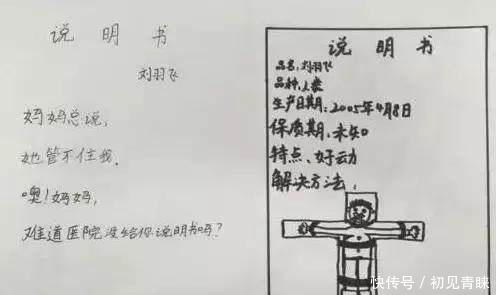 说明书
刘羽飞
妈妈总说,
她管不住我.
噢!妈妈,
难道医院没给你说明书吗?
说明书
品名:刘羽飞
品种:人类
生产日期:2005年4月8日
保质期:未知
特点:好动
解决方法:
快传号/初见青睐